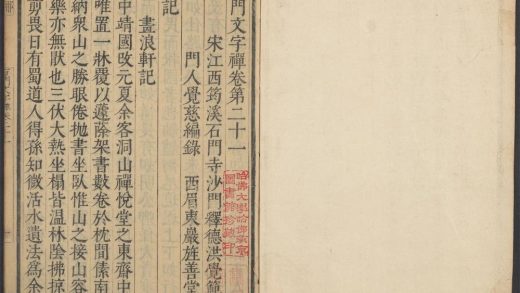 門文字禪卷第二十一
宋江西筠溪石門寺沙門釋德洪覺範
門人覺慈編錄　西眉東巖旌善堂
記
畫浪軒記
中靖國改元夏余客洞山禪悅堂之東齋中
唯置一牀覆以籧篨架書數卷於枕間傃南
納衆山之勝眼倦抛書坐臥惟山之接山容
樂亦無猒也三伏大熱坐榻皆温林陰拂掠
剪畏日有蜀道人得孫知微活水遺法爲余
哈佛大學哈佛燕京
圖書館珍藏印